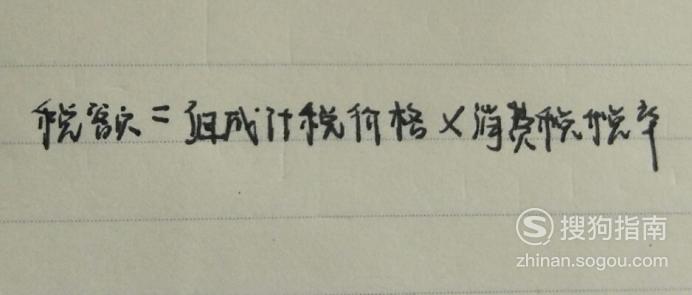 税额=组成计税价格×消费税税率
搜狗指南
zhinan.sogou.com